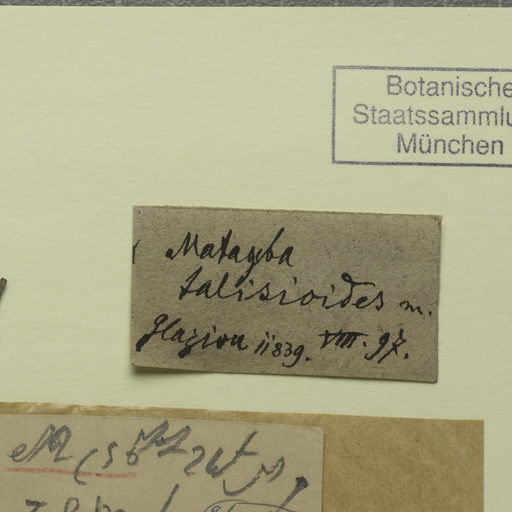 Botanische
Staatssammlu
München
Matayba
talisioides m.
Glaziou 11839. VIII. 97.